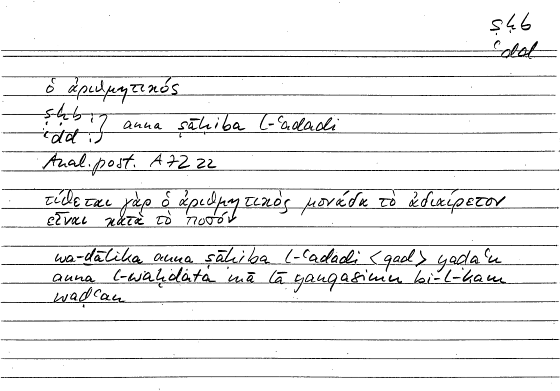 ṣḥb
ʿdd
ὁ ἀριθμητικός
ṣḥb :} anna ṣāḥiba l-ʿadadi
ʿdd :}
Anal. post. A 72 22
τίθεται γὰρ ὁ ἀριθμητικὸς μονάδα τὸ ἀδιαίρετον
εἶναι κατὰ τὸ ποσόν
wa-ḏālika anna ṣāḥiba l-ʿadadi <qad> yaḍaʿu
anna l-waḥdata mā lā yanqasimu bi-l-kam
waḍʿan